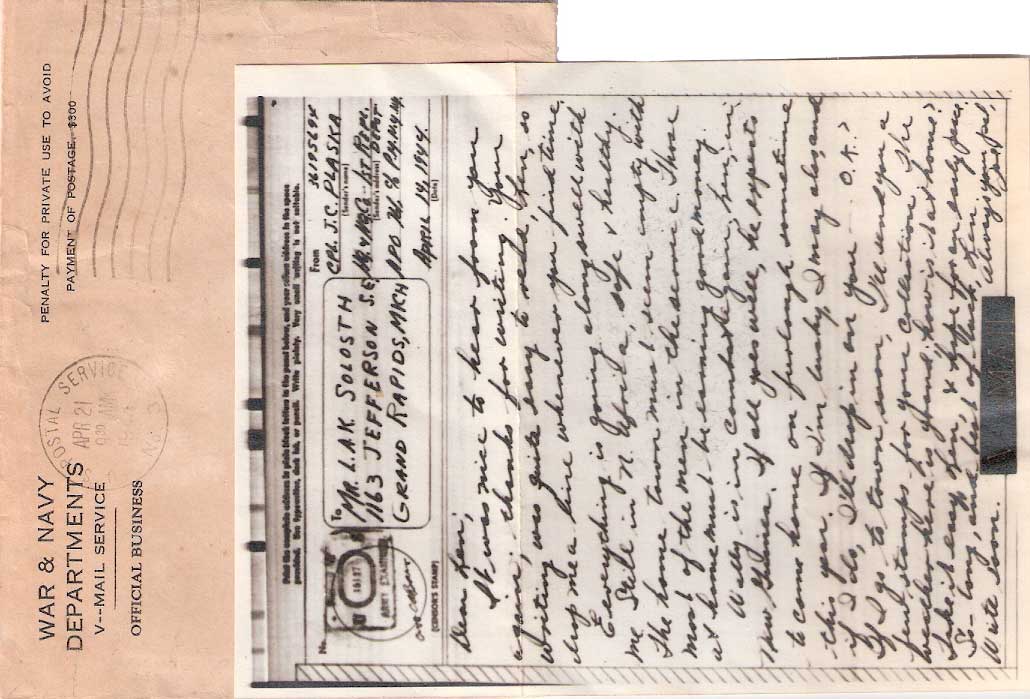 WAR & NAVY
DEPARTMENTS
V--MAIL SERVICE
OFFICIAL BUSINESS
PENALTY FOR PRIVATE USE TO AVOID
PAYMENT OF POSTAGE, $300
POSTAL SERVICE
APR 21
930 AM
No. 3
Print the complete address in plain block letters in the panel below, and your return address in the space
provided. Use typewriter, dark ink, or pencil. Write plainly. Very small writing is not suitable.
No.
ARMY EXAMINER
(CENSOR'S STAMP)
To
MR. L.A.K. SOLOSTH
1163 JEFFERSON S.E.
GRAND RAPIDS, MICH
From
CPL. J.C. PLASKA 36195694
(Sender's name)
(Sender's address)
APO
APRIL 14, 1944
(Date)
Dear Len,
It was nice to hear from you
again; thanks for writing. Your
writing was quite easy to read, Len, so
drop me a line whenever you find time.
Everything is going along swell with
me. Still in N. Africa, safe & healthy.
The home town must seem empty with
most of the men in the service. Those
at home must be earning good money.
Wally is in Camp again, in
now. If all goes well, he expects
to come home on furlough sometime
this year. If I'm lucky, I may also, and
if I do, I'll drop in on you - O.K.?
If I go to town soon, I'll send you a
few stamps for your collection. The
weather here is grand; how is it at home?
Take it easy Len & hope for an early peace.
So-long, and best of luck, Len.
Write soon. Always your pal,